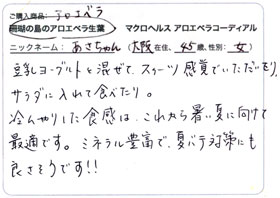 ご購入商品: アロエベラ
珊瑚の島のアロエベラ生葉 マクロヘルス アロエベラコーディアル
ニックネーム: あさちゃん (大阪在住、45歳、性別: 女)
豆乳ヨーグルトと混ぜて、スイーツ感覚でいただいたり
サラダに入れて食べたり。
冷んやりした食感は、これから暑い夏に向けて
最適です。ミネラル豊富で、夏バテ対策にも
良さそうです!!